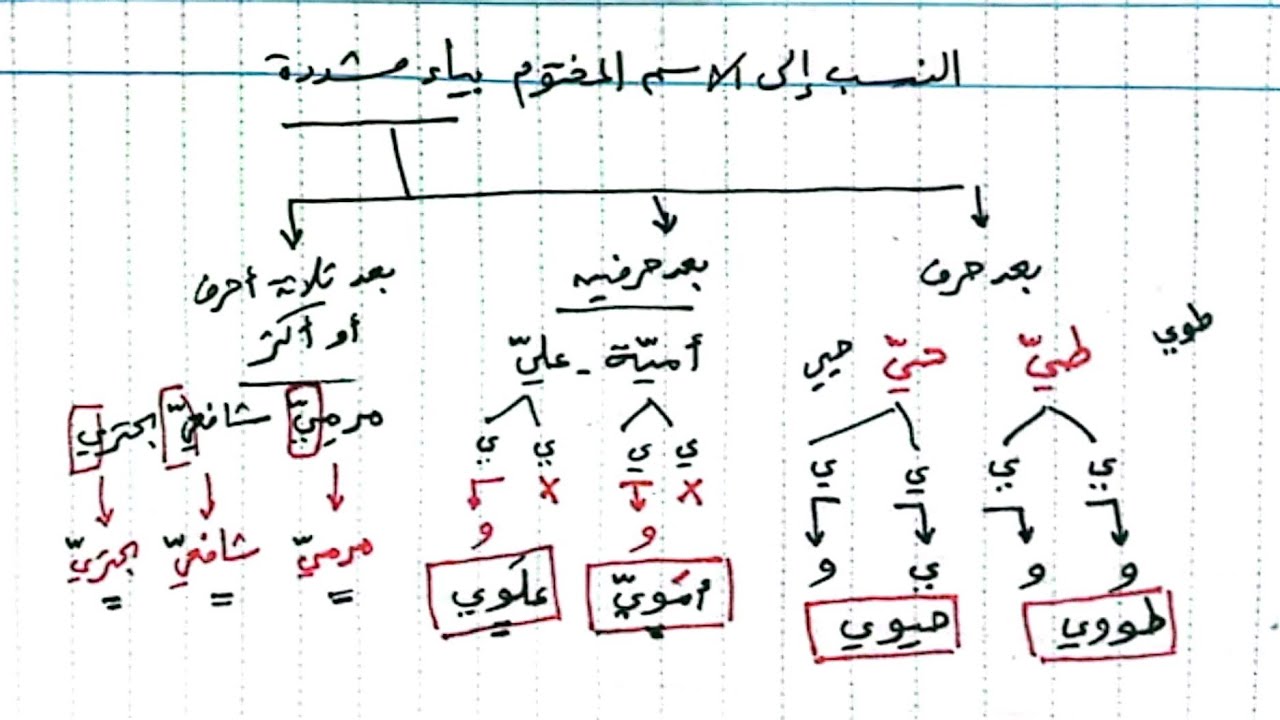 النسب إلى الاسم المختوم بياء مشددة
بعد حرف
بعد حرفين
بعد ثلاثة أحرف
أو أكثر
طوي
طيّ
حيّ
حيي
أميّة - عليّ
مرميّ شافعيّ بحتري
ي ي ي ي
ي ي ي ي
X X
و و ي و
و و
طووي
حيوي
أمَويّ
علَوي
مرميّ شافعيّ بحتريّ